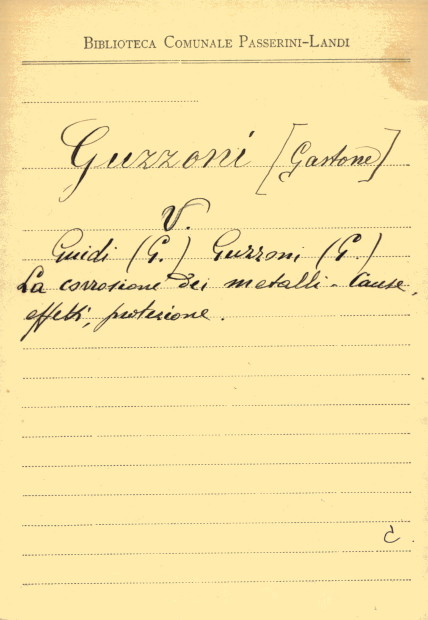 BIBLIOTECA COMUNALE PASSERINI-LANDI
Guzzoni [Gastone]
V.
Guidi (G.) Guzzoni (G.)
La corrosione dei metalli - Cause,
effetti, protezione.
c.